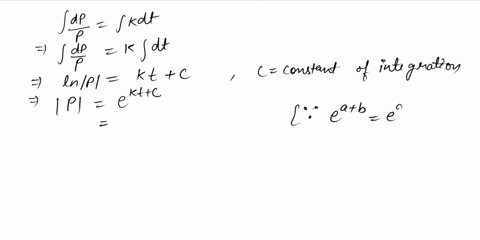 ∫ dP/P = ∫ k dt
⇒ ∫ dP/P = k ∫ dt
⇒ ln|P| = kt + c , c = constant of integration
⇒ |P| = e^{kt+c}
= [∵ e^{a+b} = e^a